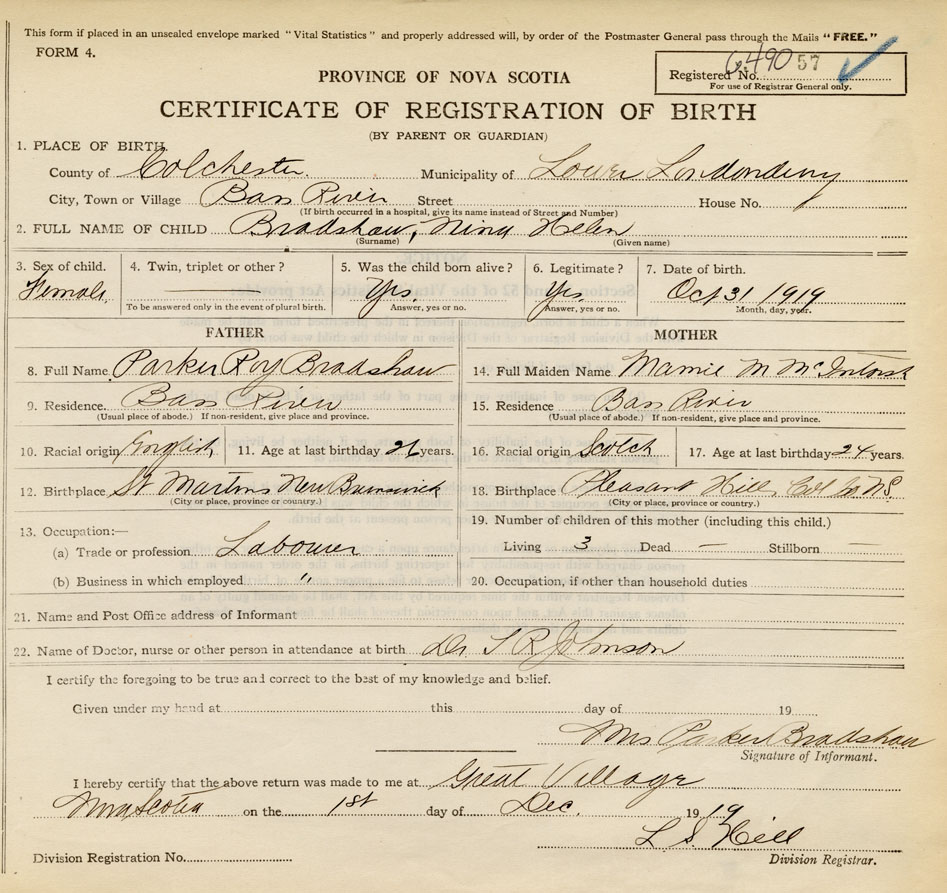 This form if placed in an unsealed envelope marked "Vital Statistics" and properly addressed will, by order of the Postmaster General pass through the Mails "FREE."
FORM 4.
Registered No. 6490 57
For use of Registrar General only.
PROVINCE OF NOVA SCOTIA
CERTIFICATE OF REGISTRATION OF BIRTH
(BY PARENT OR GUARDIAN)
1. PLACE OF BIRTH.
County of Colchester. Municipality of Lower Londonderry
City, Town or Village Bass River Street House No.
(If birth occurred in a hospital, give its name instead of Street and Number)
2. FULL NAME OF CHILD Bradshaw, Nina Helen
(Surname) (Given name)
3. Sex of child. 4. Twin, triplet or other? 5. Was the child born alive? 6. Legitimate? 7. Date of birth.
Female. — Yes. Yes. Oct 31 1919
To be answered only in the event of plural birth. Answer, yes or no. Answer, yes or no. Month, day, year.
FATHER MOTHER
8. Full Name Parker Roy Bradshaw 14. Full Maiden Name Mamie M McIntosh
9. Residence. Bass River 15. Residence Bass River
(Usual place of abode.) If non-resident, give place and province. (Usual place of abode.) If non-resident, give place and province.
10. Racial origin English 11. Age at last birthday 26 years. 16. Racial origin Scotch 17. Age at last birthday 24 years.
12. Birthplace St Martins New Brunswick 18. Birthplace Pleasant Hill, Col Co NS
(City or place, province or country.) (City or place, province or country.)
13. Occupation:— 19. Number of children of this mother (including this child.)
(a) Trade or profession Labourer Living 3 Dead — Stillborn —
(b) Business in which employed " 20. Occupation, if other than household duties
21. Name and Post Office address of Informant
22. Name of Doctor, nurse or other person in attendance at birth Dr. T R Johnson
I certify the foregoing to be true and correct to the best of my knowledge and belief.
Given under my hand at this day of 19
Mrs Parker Bradshaw
Signature of Informant.
I hereby certify that the above return was made to me at Great Village
Nova Scotia on the 1st day of Dec. 1919
L. S. Hill
Division Registration No. Division Registrar.